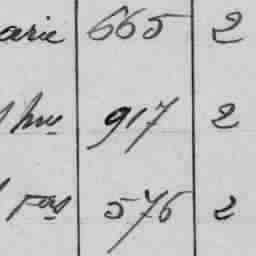 arie 665 2
hre 917 2
Fois 576 2